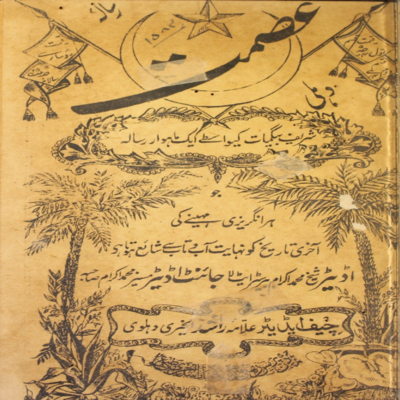 عصمت
شریف بیگمات کیواسطے ایک ماہوار رسالہ
جو
ہر انگریزی مہینے کی
آخری تاریخ کو نہایت آب و تاب سے شائع ہوتا ہے
اڈیٹر شیخ محمد اکرام بیرسٹرایٹ لا جائنٹ اڈیٹر مسز محمد اکرام
چیف ایڈیٹر علامہ راشد الخیری دہلوی